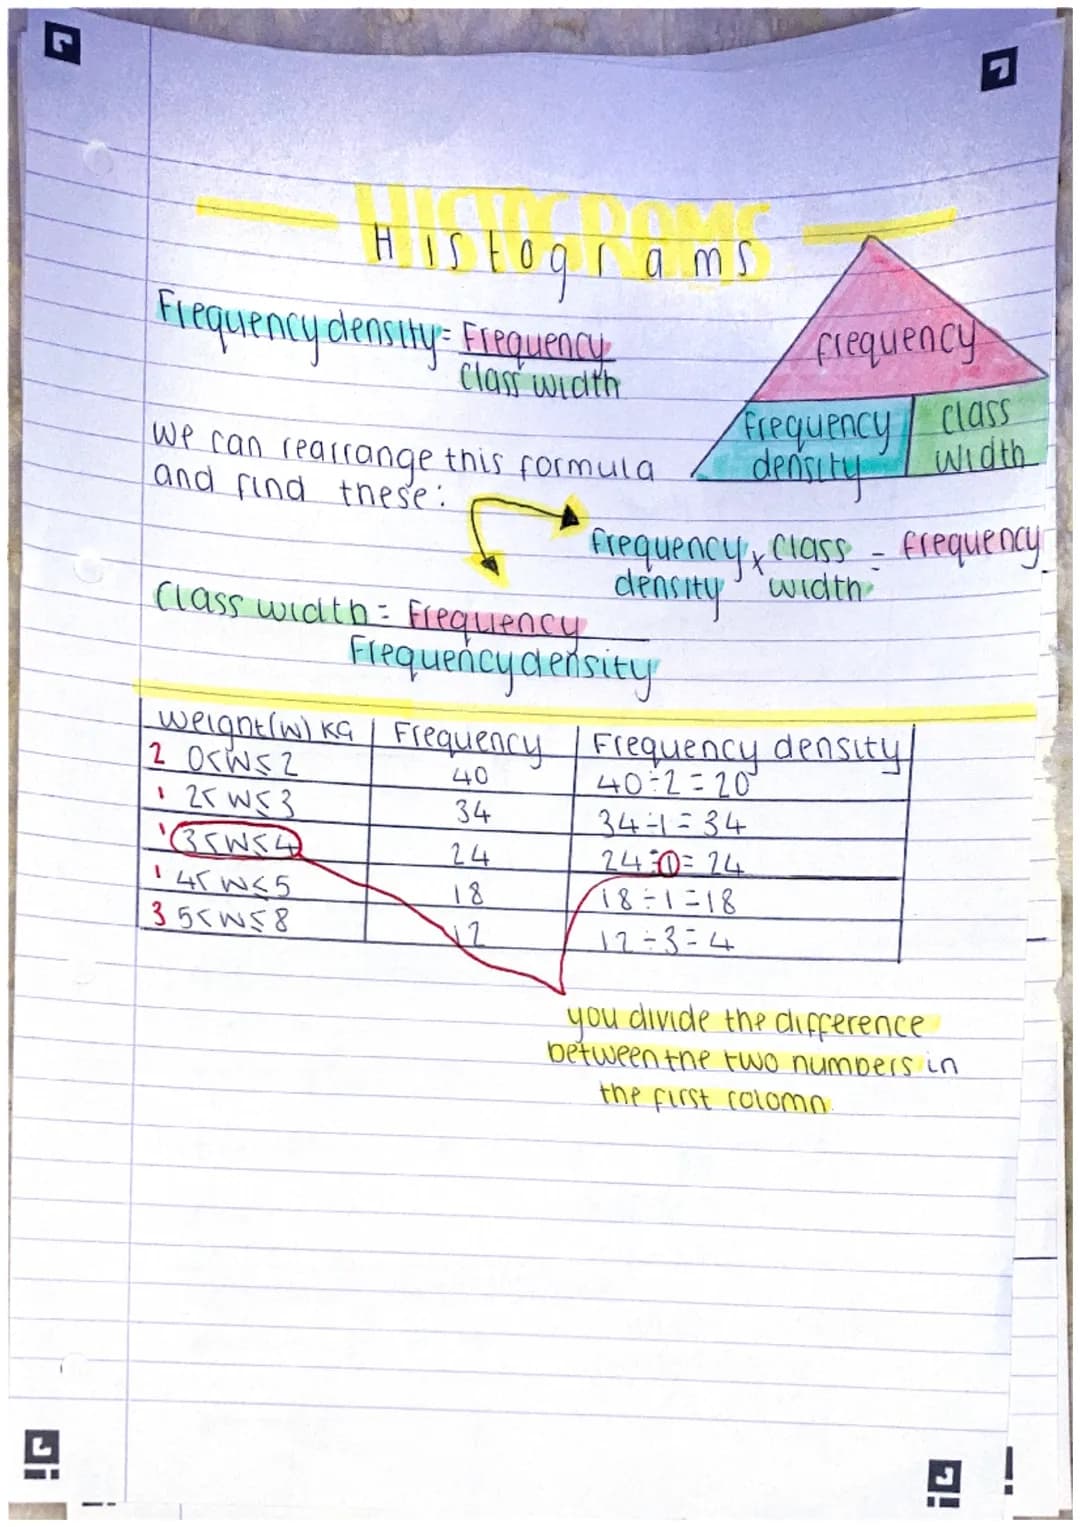 HISTOGRAMS
Histograms
Frequency density = Frequency
Class width
frequency
Frequency density
Class width
we can rearrange this formula
and find these:
frequency density x class width = frequency
Class width = Frequency
Frequency density
weight(w) KG | Frequency | Frequency density
2 0<W≤2 | 40 | 40÷2=20
1 2<W≤3 | 34 | 34÷1=34
1 3<W≤4 | 24 | 24÷1=24
1 4<W≤5 | 18 | 18÷1=18
3 5<W≤8 | 12 | 12÷3=4
you divide the difference
between the two numbers in
the first colomn.